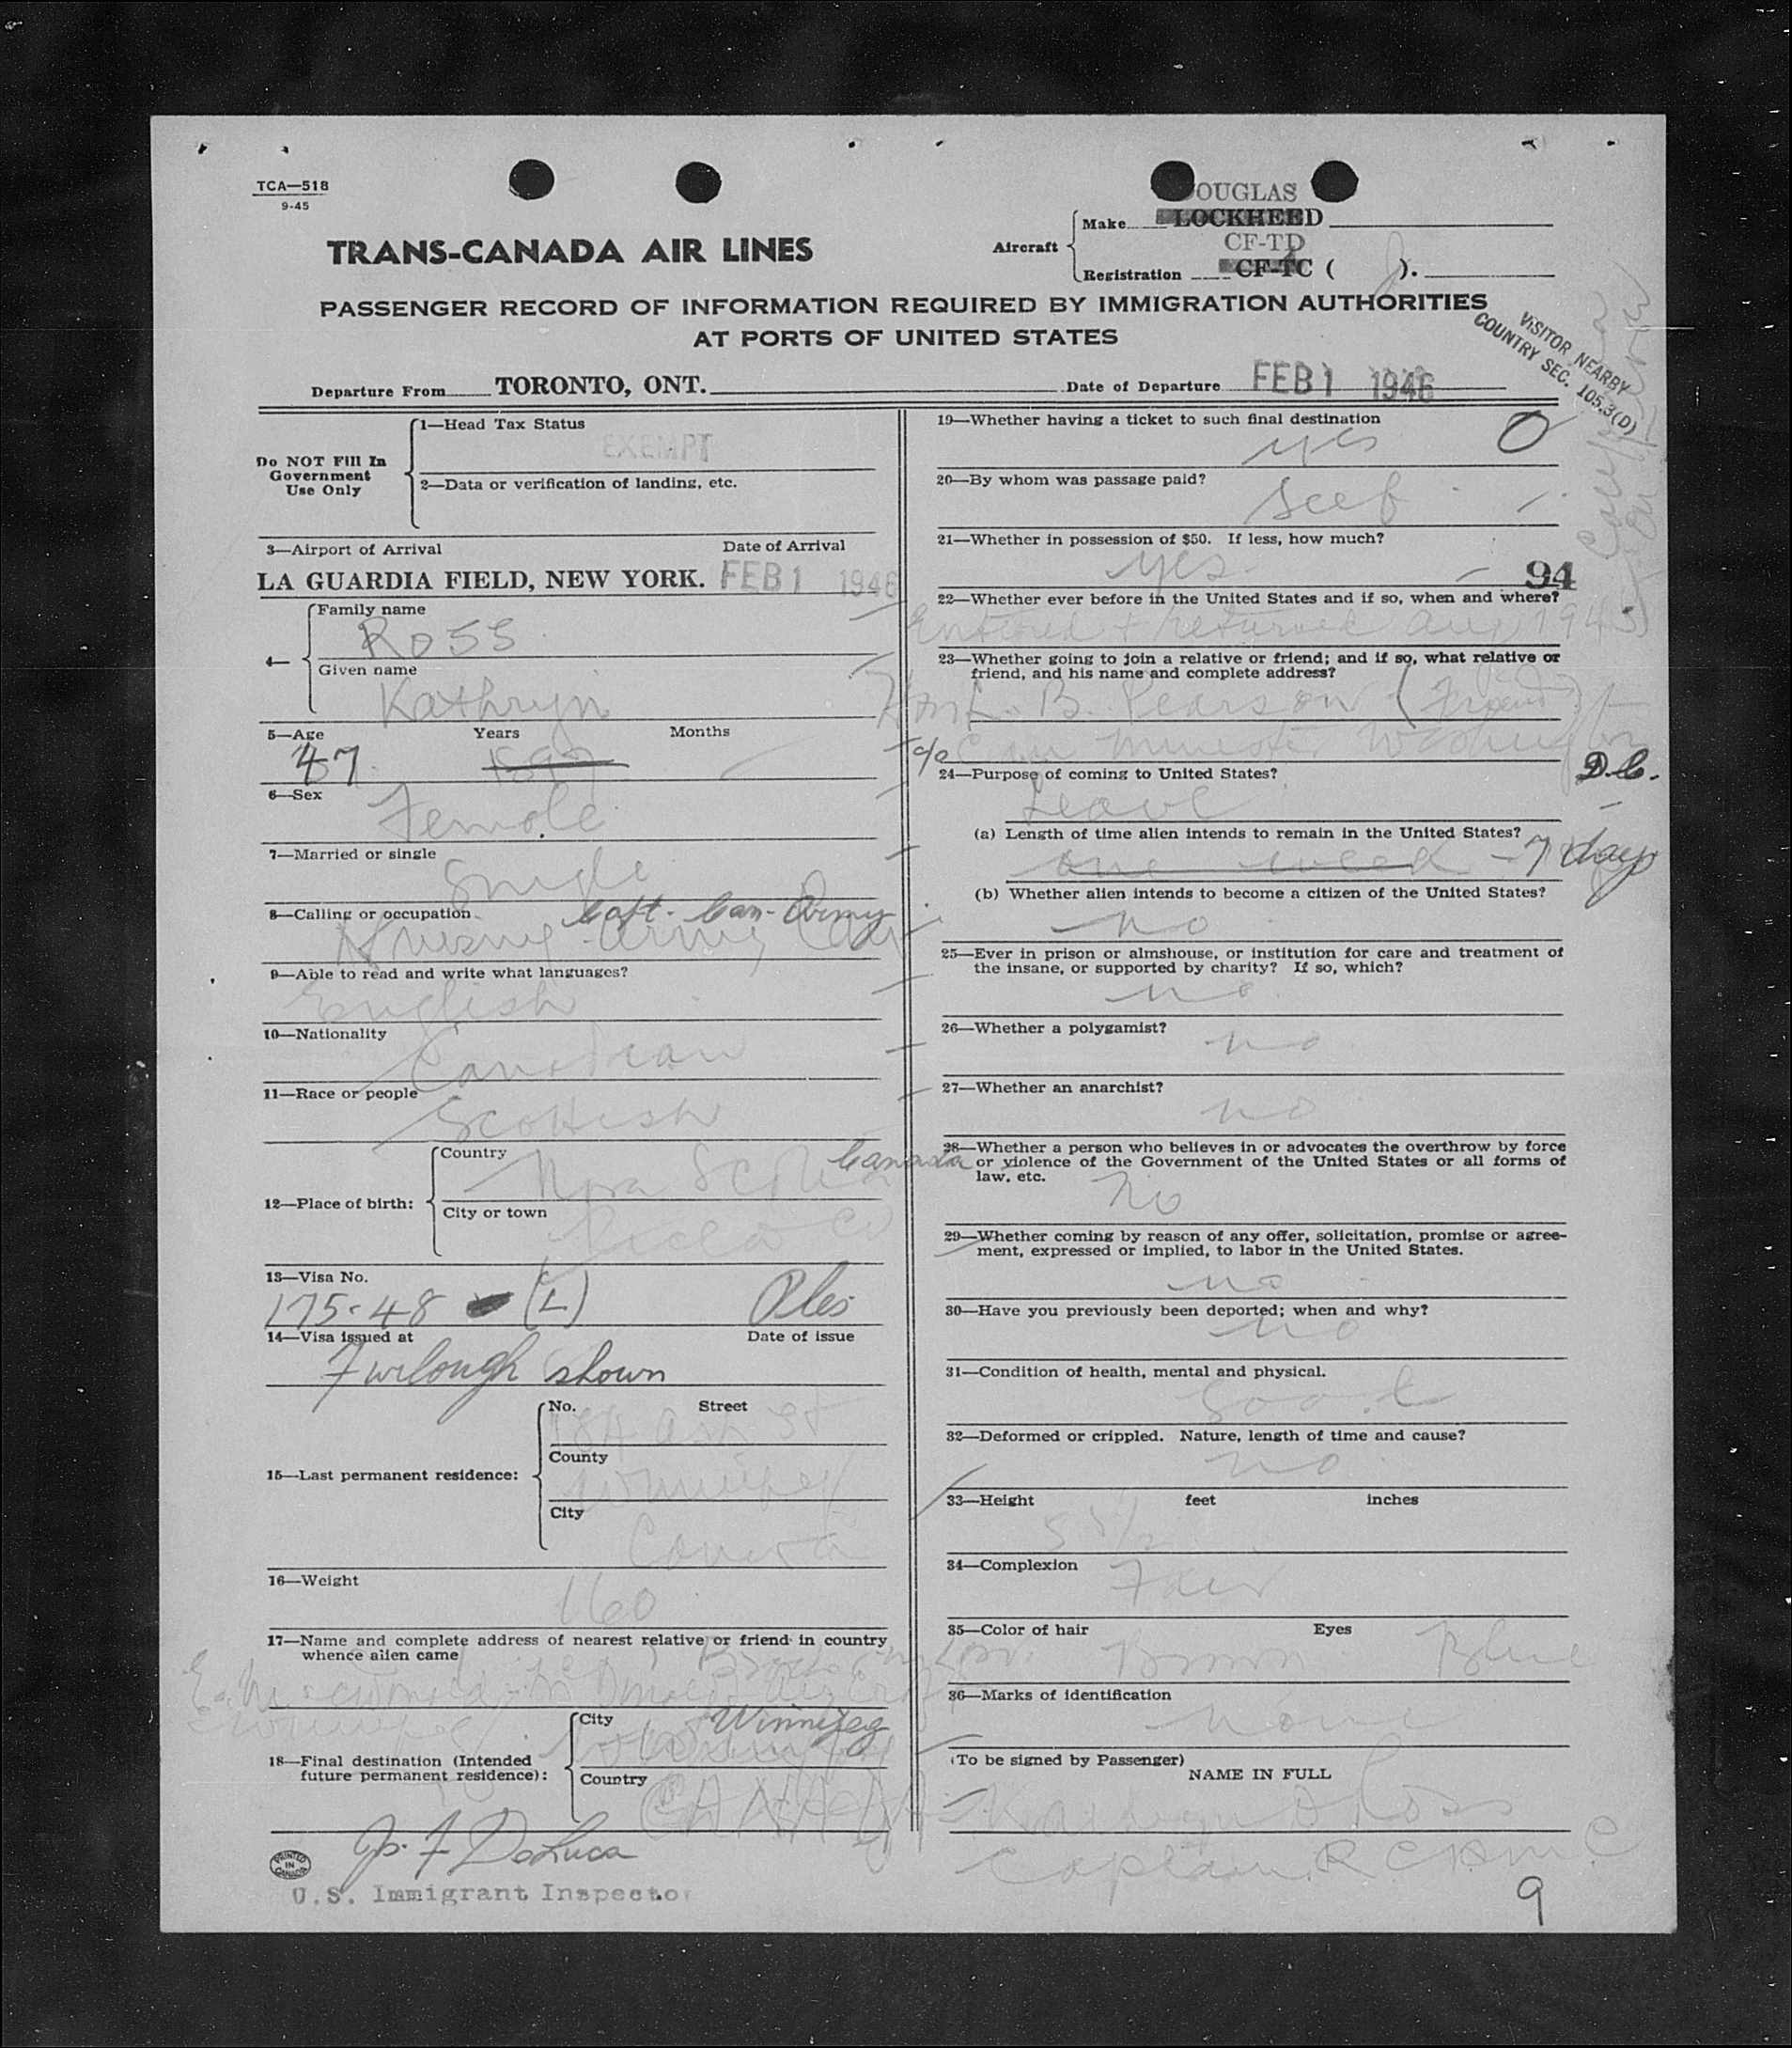 TCA—518
9-45
DOUGLAS
Aircraft
Make LOCKHEED
CF-TD
Registration CF-TC ( ).
TRANS-CANADA AIR LINES
PASSENGER RECORD OF INFORMATION REQUIRED BY IMMIGRATION AUTHORITIES
AT PORTS OF UNITED STATES
VISITOR NEARBY
COUNTRY SEC. 105.3(D)
Departure From TORONTO, ONT. Date of Departure FEB 1 1946
Do NOT Fill In
Government
Use Only
1—Head Tax Status
EXEMPT
2—Data or verification of landing, etc.
3—Airport of Arrival Date of Arrival
LA GUARDIA FIELD, NEW YORK. FEB 1 1946
4—
Family name
Ross
Given name
Kathryn
5—Age Years Months
47
6—Sex
Female
7—Married or single
Single
8—Calling or occupation Capt. Can. Army
Nursing Army
9—Able to read and write what languages?
English
10—Nationality
Canadian
11—Race or people
Scottish
12—Place of birth:
Country Canada
Nova Scotia
City or town
Pictou Co
13—Visa No.
175.48 (L) Ples
14—Visa issued at Date of issue
Furlough shown
15—Last permanent residence:
No. Street
184 Ash St
County
Winnipeg
City
Canada
16—Weight
160
17—Name and complete address of nearest relative or friend in country
whence alien came
Winnipeg
18—Final destination (Intended
future permanent residence):
City Winnipeg
Winnipeg
Country
CANADA
Jo. F DeLuca
PRINTED
IN
CANADA
U.S. Immigrant Inspector
19—Whether having a ticket to such final destination
yes O
20—By whom was passage paid?
Self
21—Whether in possession of $50. If less, how much?
yes 94
22—Whether ever before in the United States and if so, when and where?
Entered + returned Aug 1945
23—Whether going to join a relative or friend; and if so, what relative or
friend, and his name and complete address?
Hon L. B. Pearson (Friend)
c/o Can Minister Washington
D.C.
24—Purpose of coming to United States?
Leave
(a) Length of time alien intends to remain in the United States?
one week - 7 days
(b) Whether alien intends to become a citizen of the United States?
no
25—Ever in prison or almshouse, or institution for care and treatment of
the insane, or supported by charity? If so, which?
no
26—Whether a polygamist?
no
27—Whether an anarchist?
no
28—Whether a person who believes in or advocates the overthrow by force
or violence of the Government of the United States or all forms of
law, etc.
no
29—Whether coming by reason of any offer, solicitation, promise or agree-
ment, expressed or implied, to labor in the United States.
no
30—Have you previously been deported; when and why?
no
31—Condition of health, mental and physical.
Good
32—Deformed or crippled. Nature, length of time and cause?
no
33—Height feet inches
5 5½
34—Complexion
Fair
35—Color of hair Eyes
Brown Blue
36—Marks of identification
none
(To be signed by Passenger)
NAME IN FULL
Kathryn A Ross
Captain R C A M C
9